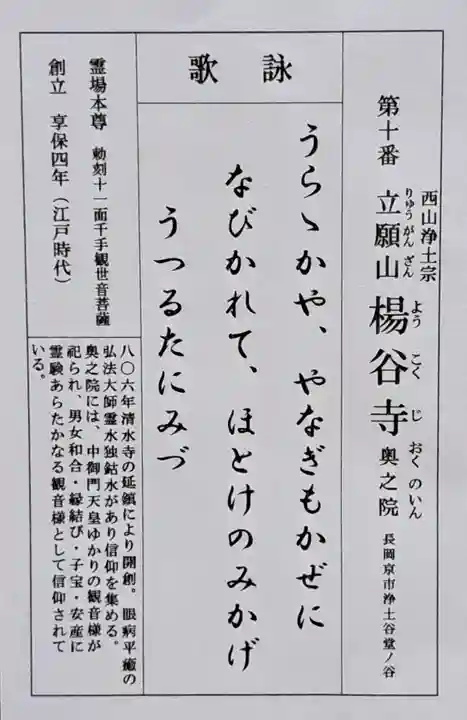 第十番 西山浄土宗 立願山 楊谷寺 奥之院 長岡京市浄土谷堂ノ谷
りゅうがんざん ようこくじ おくのいん
詠歌
うらゝかや、やなぎもかぜに
なびかれて、ほとけのみかげ
うつるたにみづ
霊場本尊 勅刻十一面千手観世音菩薩
創立 享保四年（江戸時代）
八〇六年清水寺の延鎮により開創。眼病平癒の
弘法大師霊水独鈷水があり信仰を集める。
奥之院には、中御門天皇ゆかりの観音様が
祀られ、男女和合・縁結び・子宝・安産に
霊験あらたかなる観音様として信仰されて
いる。